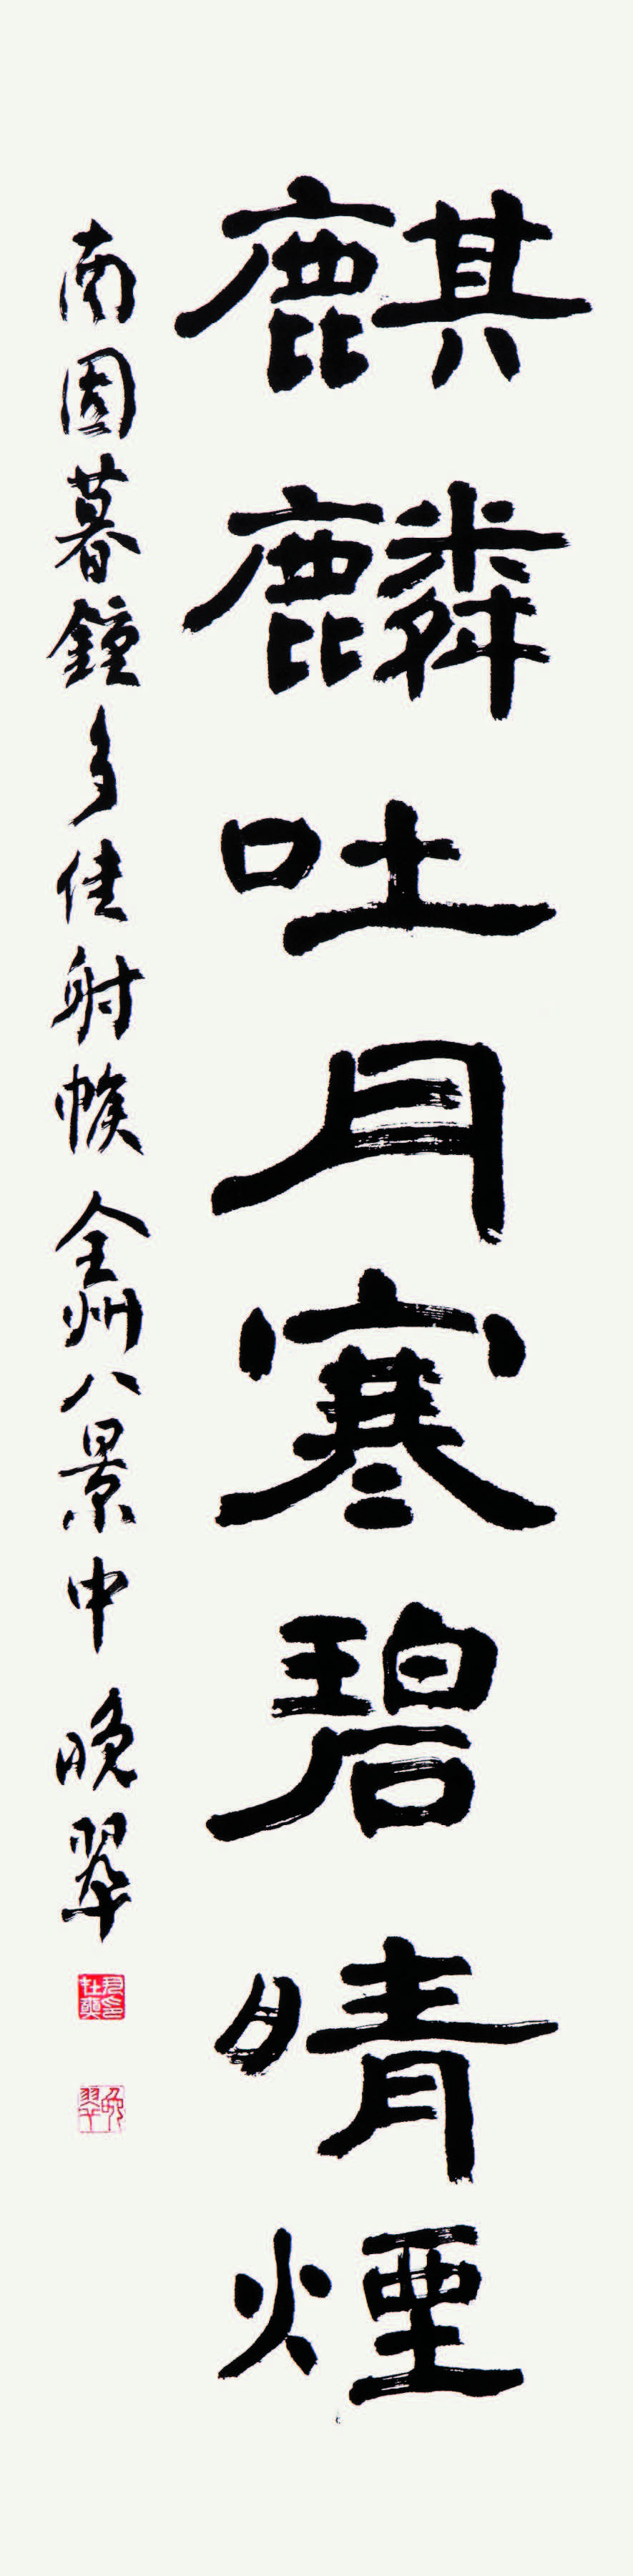 麒麟吐月寒碧晴煙
南固暮鐘多佳射帿 全州八景中 晚翠
晚翠